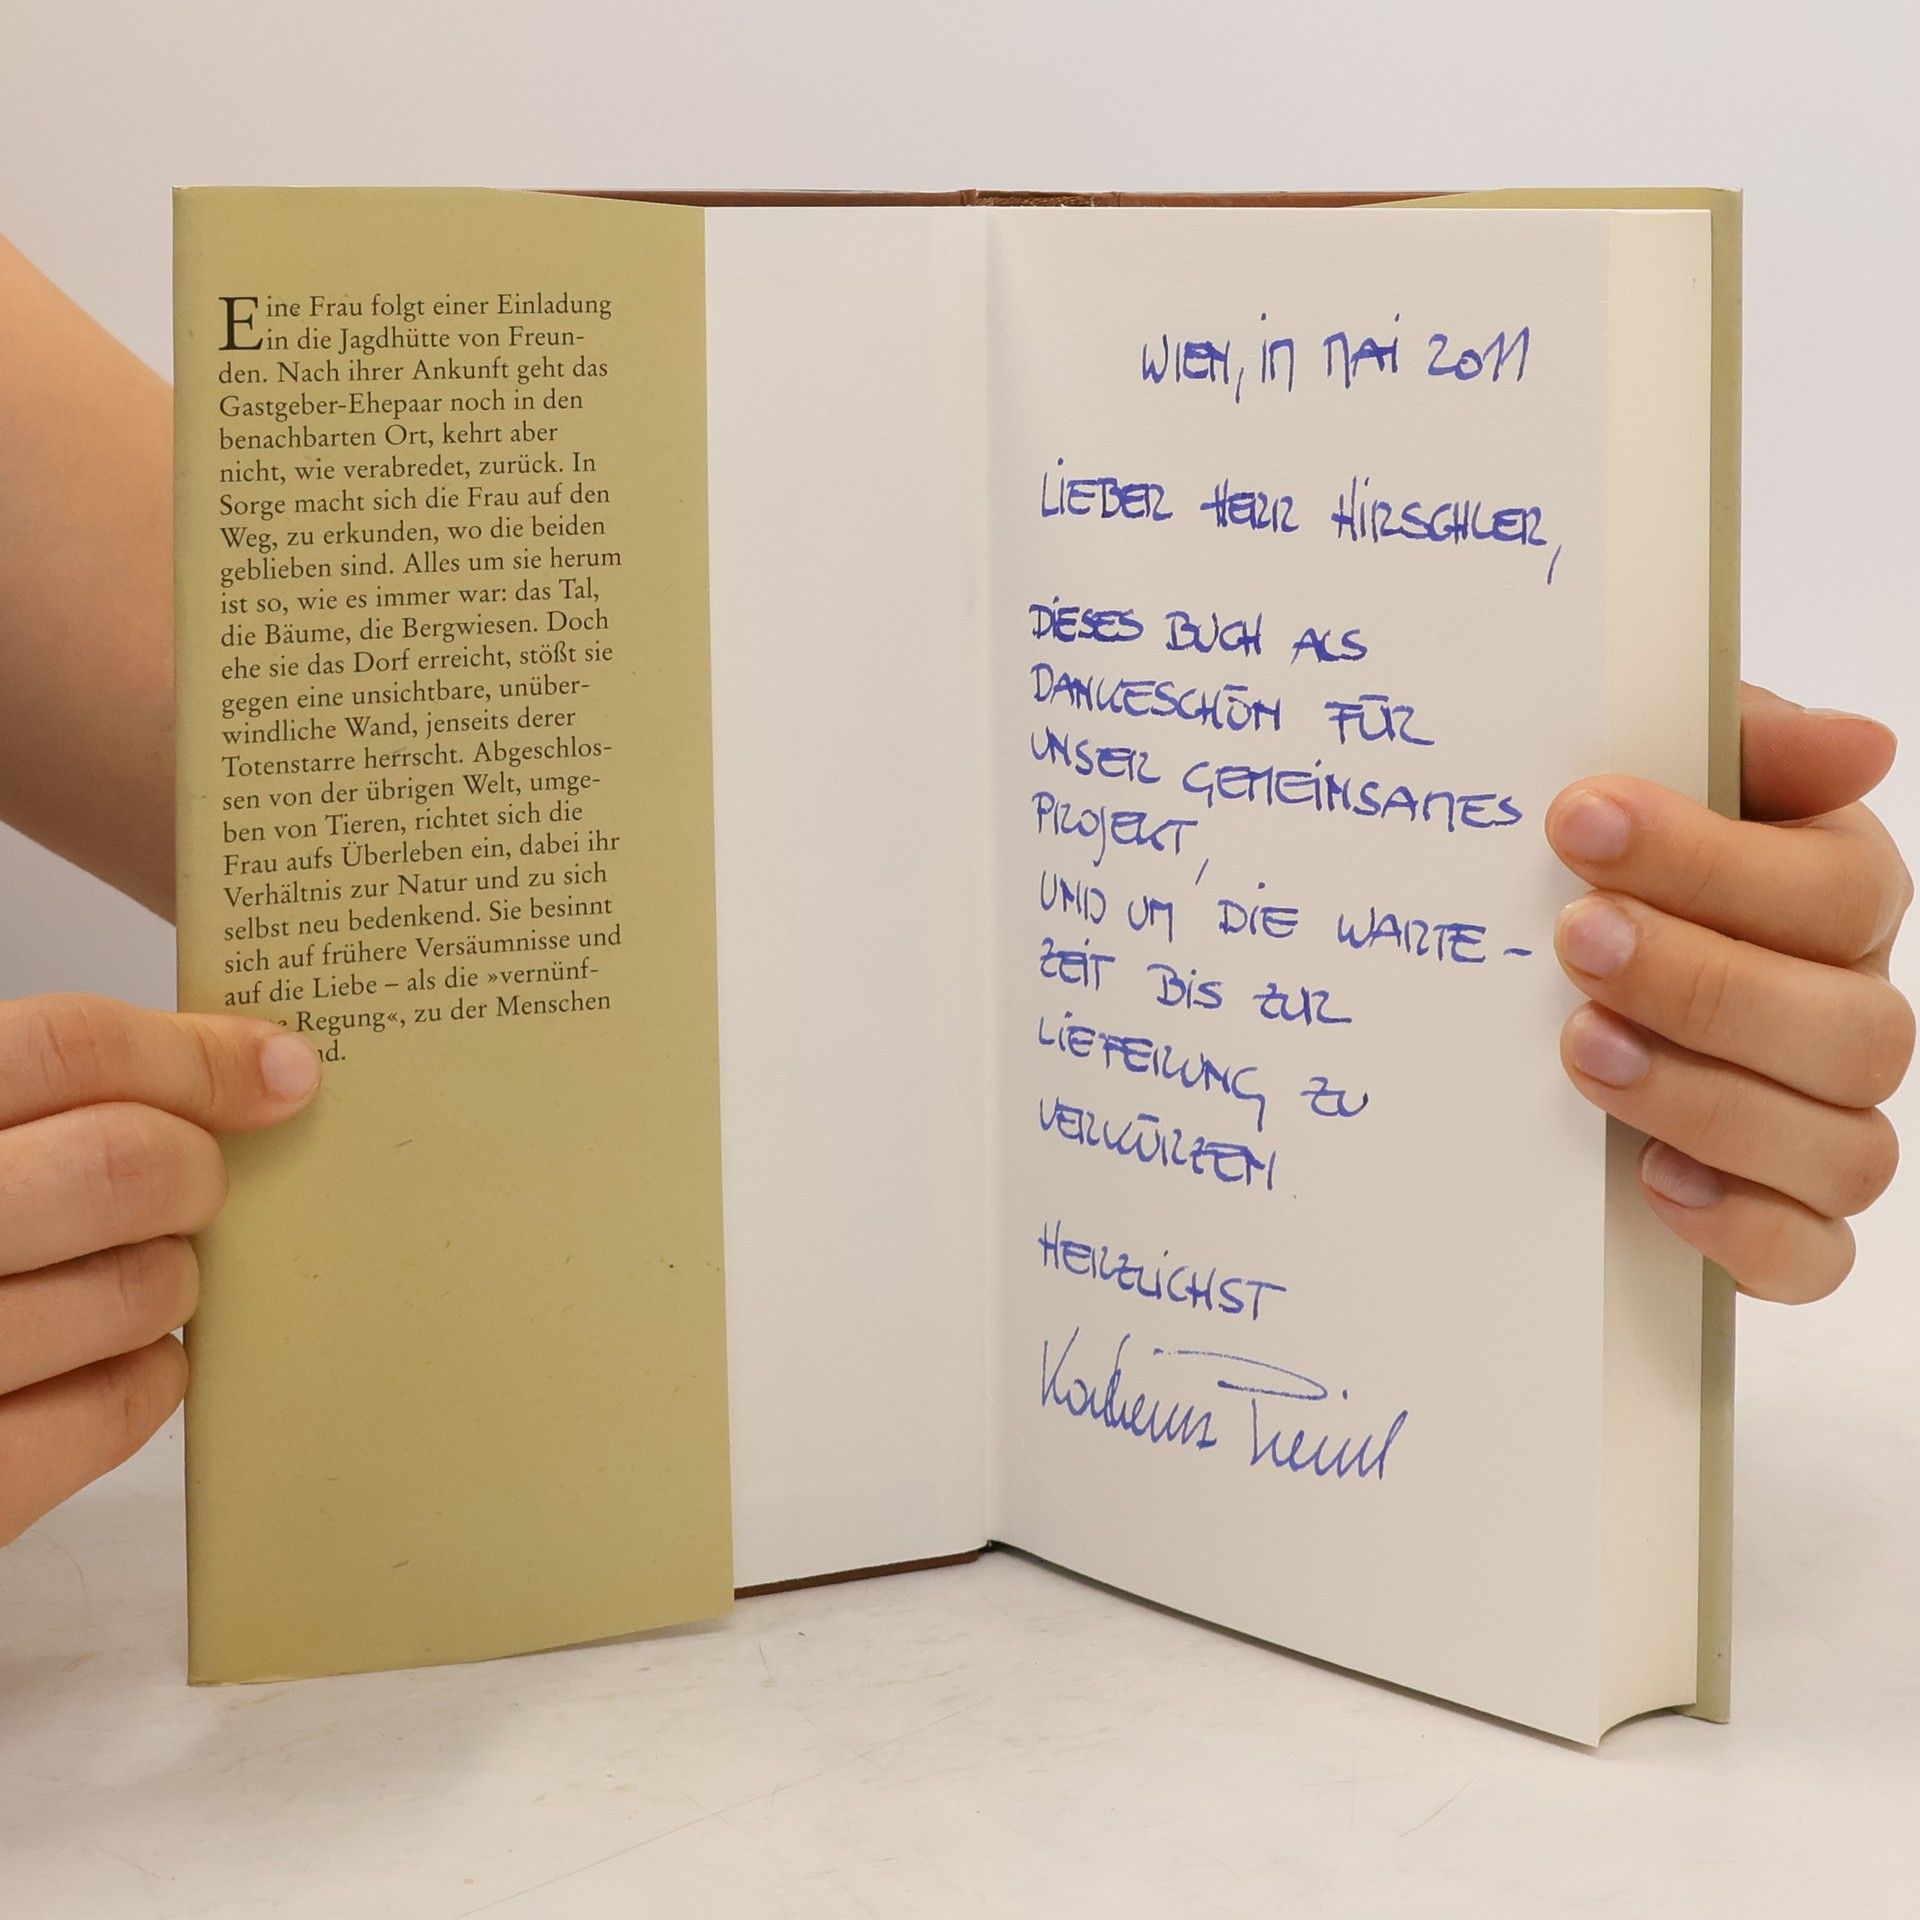 Eine Frau folgt einer Einladung
in die Jagdhütte von Freun-
den. Nach ihrer Ankunft geht das
Gastgeber-Ehepaar noch in den
benachbarten Ort, kehrt aber
nicht, wie verabredet, zurück. In
Sorge macht sich die Frau auf den
Weg, zu erkunden, wo die beiden
geblieben sind. Alles um sie herum
ist so, wie es immer war: das Tal,
die Bäume, die Bergwiesen. Doch
ehe sie das Dorf erreicht, stößt sie
gegen eine unsichtbare, unüber-
windliche Wand, jenseits derer
Totenstarre herrscht. Abgeschlos-
sen von der übrigen Welt, umge-
ben von Tieren, richtet sich die
Frau aufs Überleben ein, dabei ihr
Verhältnis zur Natur und zu sich
selbst neu bedenkend. Sie besinnt
sich auf frühere Versäumnisse und
auf die Liebe – als die »vernünf-
Regung«, zu der Menschen
WIEN, IM MAI 2011
LIEBER HERR HIRSCHLER,
DIESES BUCH ALS
DANKESCHÖN FÜR
UNSER GEMEINSAMES
PROJEKT,
UND UM DIE WARTE-
ZEIT BIS ZUR
LIEFERUNG ZU
VERKÜRZEN.
HERZLICHST